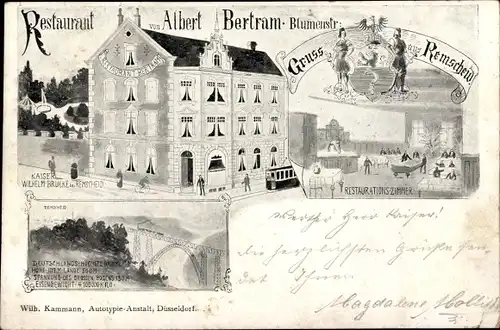 Restaurant von Albert Bertram. Blumenstr:
Gruss aus Remscheid
RESTAURANT BERTRAM
KAISER
WILHELM BRÜCKE B. REMSCHEID
RESTAURATIONS-ZIMMER
REMSCHEID
DEUTSCHLANDS HÖCHSTE BRÜCKE
HÖHE 107 M. LÄNGE 500 M.
SPANNUNG DES GROSSEN BOGENS
EISENGEWICHT
Werther Herr Kaiser!
die herzlichsten Grüße
Ihnen
Magdalene
Wilh. Kammann, Autotypie-Anstalt, Düsseldorf.